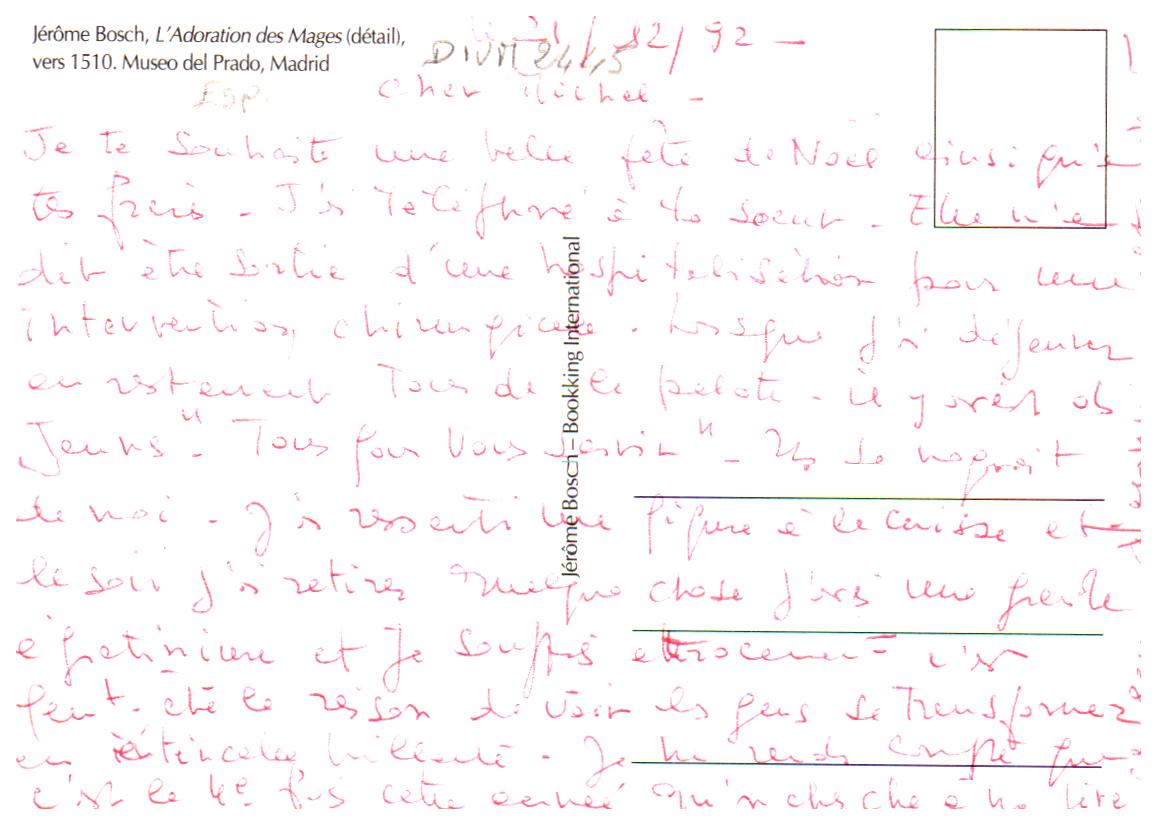 Jérôme Bosch, L'Adoration des Mages (détail),
vers 1510. Museo del Prado, Madrid
DIVM 24,5
ESP.
/12/92 -
Cher Michel -
Je te souhaite une belle fête de Noël ainsi qu'à
tes frères - J'ai téléphoné à ta soeur - Elle m'a
dit être sortie d'une hospitalisation pour une
intervention chirurgicale. Lorsque j'ai déjeuner
au restaurant Tour de la pelote - il y avait ds
Jeunes - "Tous pour Vous servir" - Ils se
de moi - j'ai ressenti une piqure à la cuisse et
le soir j'ai retirer quelque chose j'avai une grande
et je souffrais attrocement c'est
peut-être la raison de voir les gens se transformer
en étincelle brillante - Je me rends compte que
c'est la 4e fois cette année qu'on cherche à me
Jérôme Bosch – Bookking International